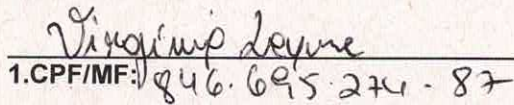 Virginia Layme
1.CPF/MF: 846.695.274-87